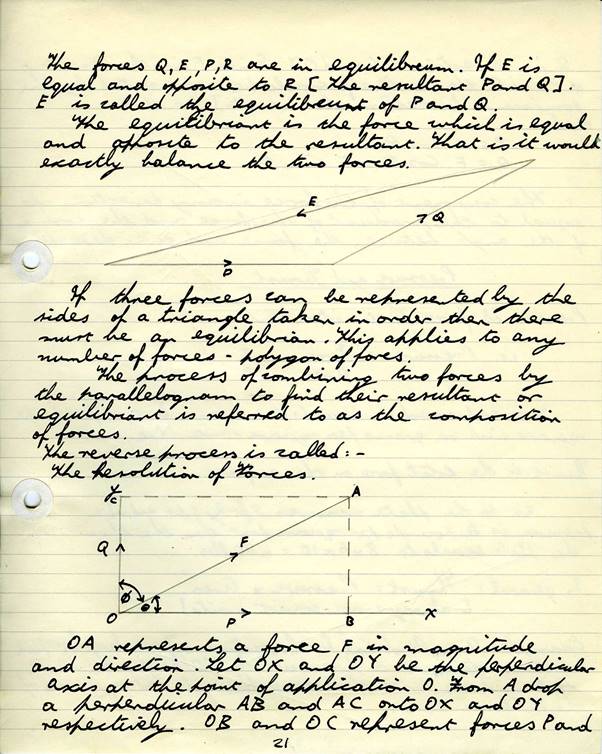 The forces Q, E, P, R are in equilibreum. If E is
equal and opposite to R [ the resultant P and Q ].
E is called the equilibreunt of P and Q.
The equilibriant is the force which is equal
and opposite to the resultant. That is it would
exactly balance the two forces.
E
Q
P
If three forces can be represented by the
sides of a triangle taken in order then there
must be an equilibrian. This applies to any
number of forces - polygon of fores.
The process of combining two forces by
the parallelogram to find their resultant or
equilibriant is referred to as the composition
of forces.
The reverse process is called :-
The Resolution of Forces.
Y
C
A
Q
F
φ
θ
O
P
B
X
OA represents a force F in magnitude
and direction. Let OX and OY be the perpendicular
axis at the point of application O. From A drop
a perpendicular AB and AC onto OX and OY
respectively. OB and OC represent forces P and
21